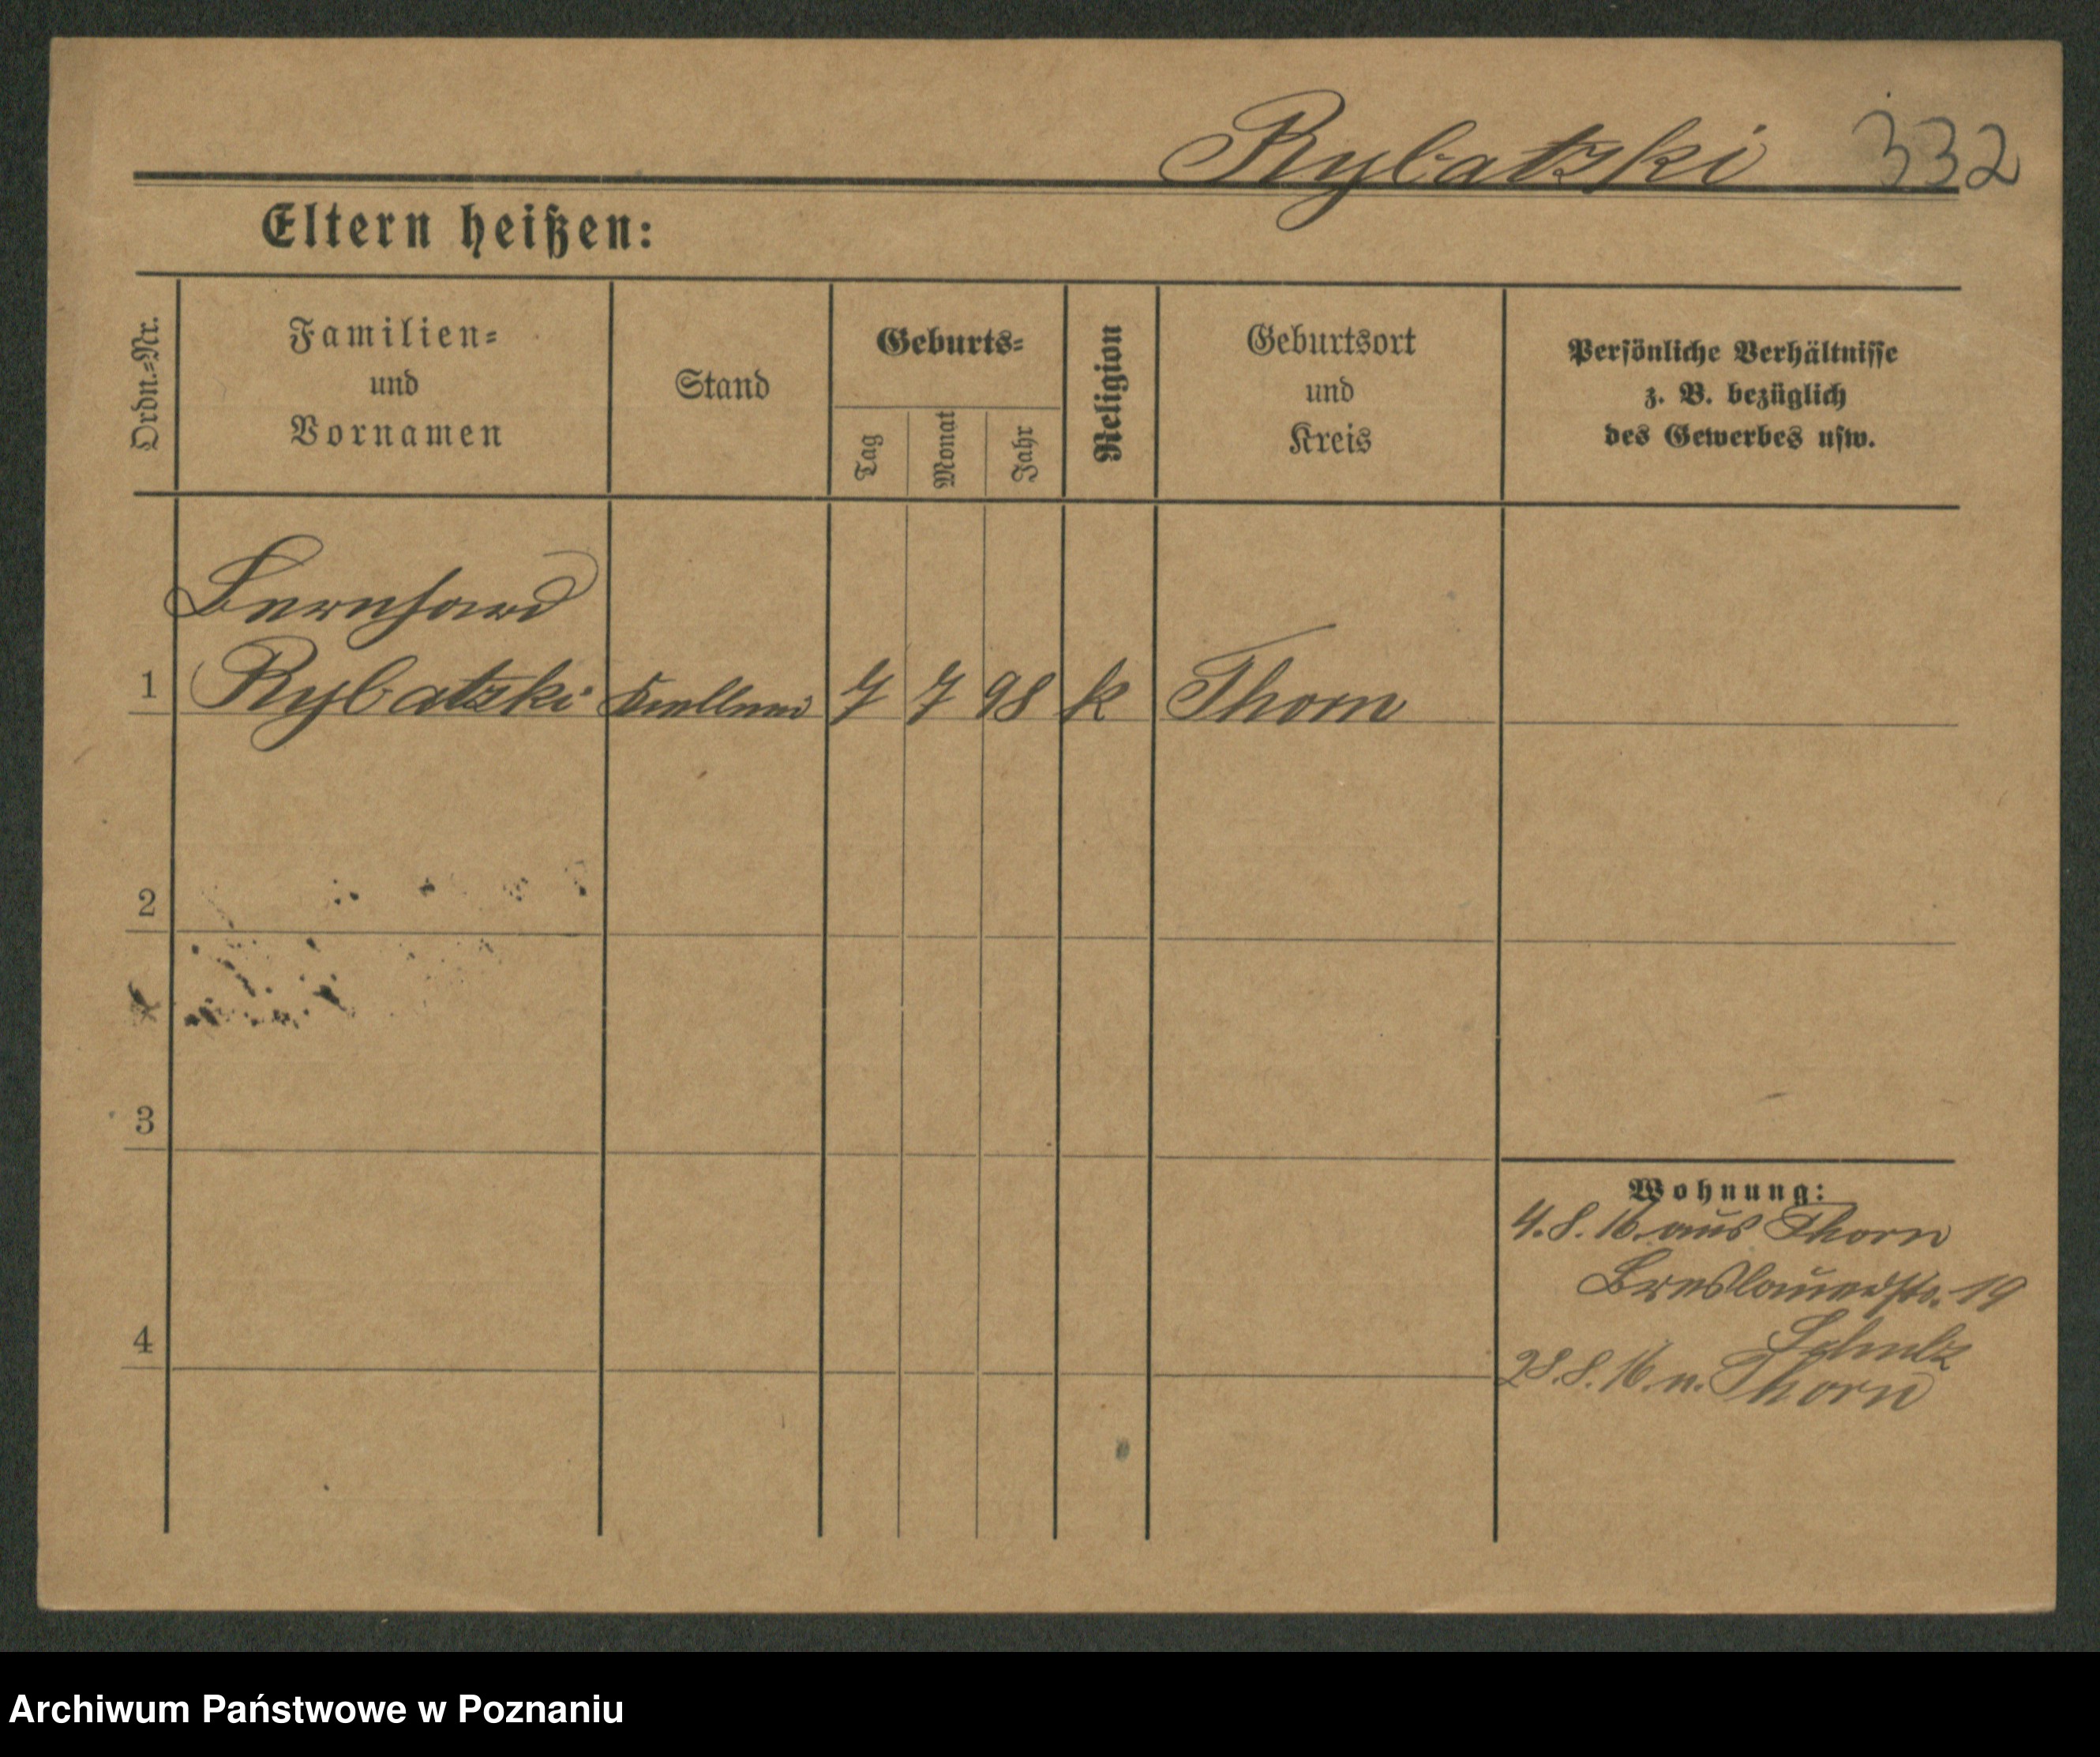 Rybatzki 332
Eltern heißen:
Ordn.-Nr.
Familien-
und
Vornamen
Stand
Geburts-
Tag
Monat
Jahr
Religion
Geburtsort
und
Kreis
Persönliche Verhältnisse
z. B. bezüglich
des Gewerbes usw.
Bernhard
1 Rybatzki 7 7 98 k Thorn
2
3
4
Wohnung:
4. 8. 16. aus Thorn
Breslauerstr. 19
Schulz
28. 8. 16. n. Thorn
Archiwum Państwowe w Poznaniu